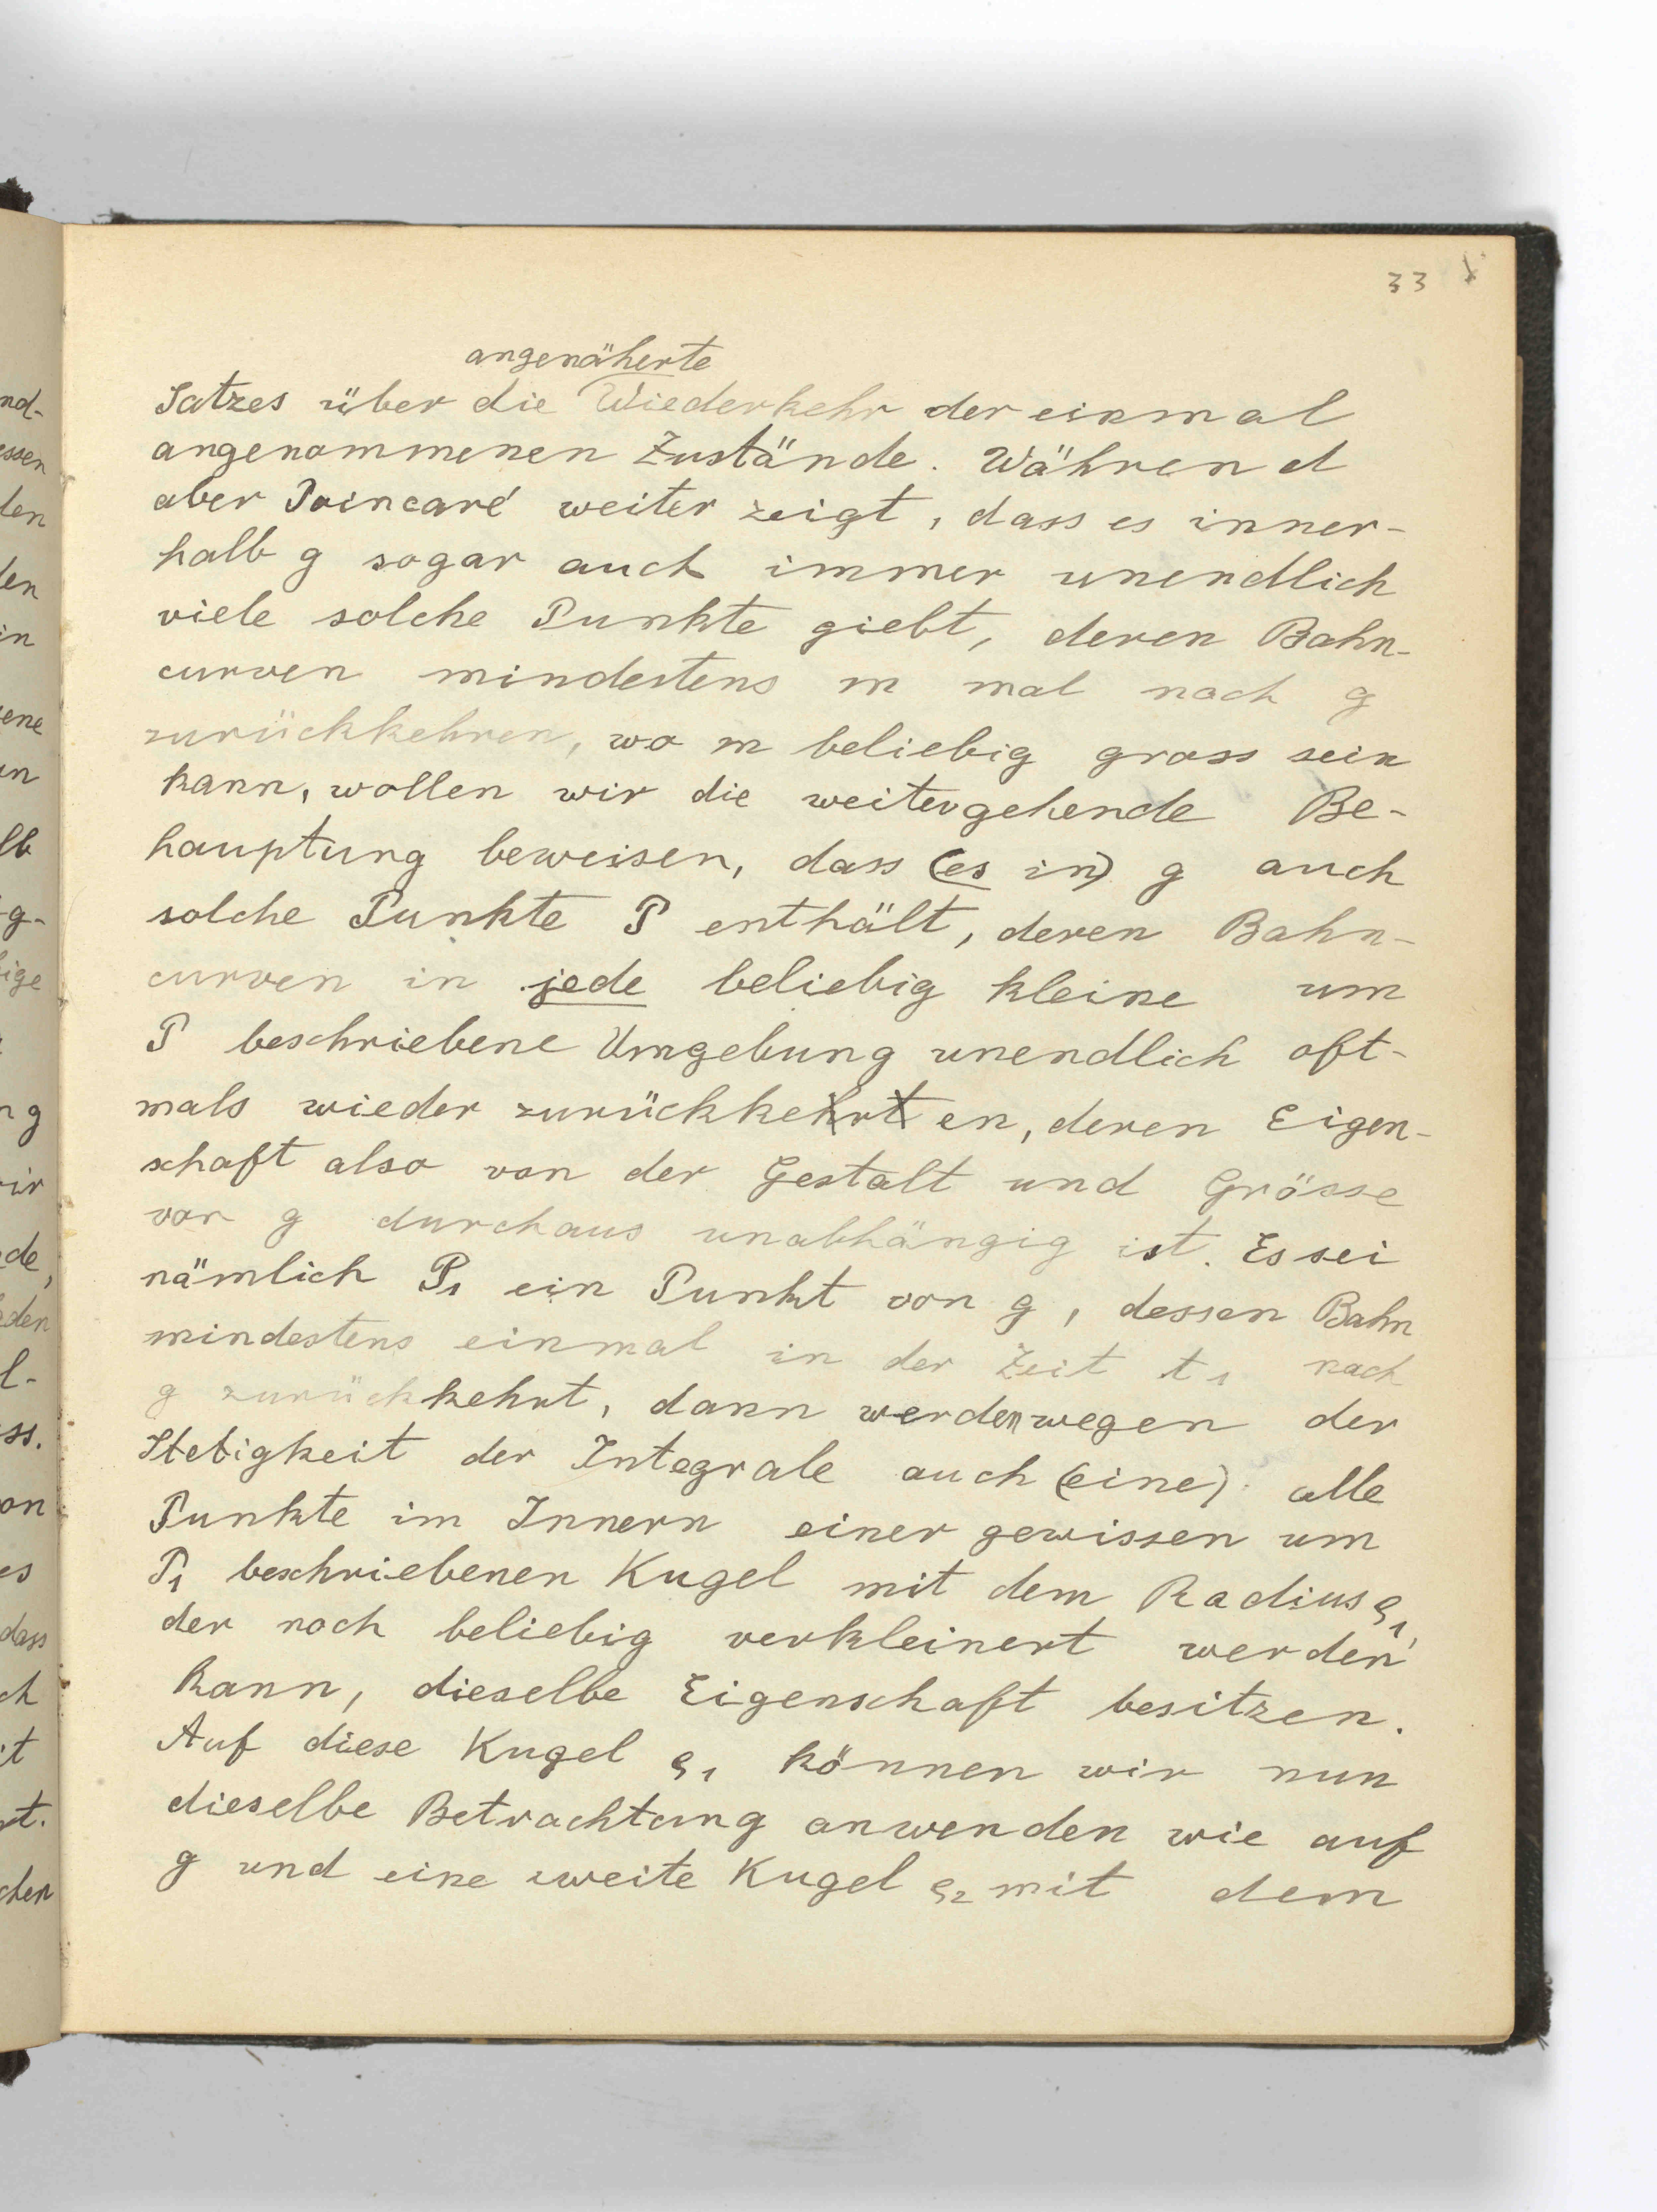 33
angenäherte
Satzes über die Wiederkehr der einmal
angenommenen Zustände. Während
aber Poincaré weiter zeigt, dass es inner-
halb g sogar auch immer unendlich
viele solche Punkte giebt, deren Bahn-
curven mindestens m mal nach g
zurückkehren, wo m beliebig gross sein
kann, wollen wir die weitergehende Be-
hauptung beweisen, dass (es in) g auch
solche Punkte P enthält, deren Bahn-
curven in jede beliebig kleine um
P beschriebene Umgebung unendlich oft-
mals wieder zurückkehrten, deren Eigen-
schaft also von der Gestalt und Grösse
von g durchaus unabhängig ist. Es sei
nämlich P₁ ein Punkt von g, dessen Bahn
mindestens einmal in der Zeit t₁ nach
g zurückkehrt, dann werden wegen der
Stetigkeit der Integrale auch (eine) alle
Punkte im Innern einer gewissen um
P₁ beschriebenen Kugel mit dem Radius ϱ₁,
der noch beliebig verkleinert werden
kann, dieselbe Eigenschaft besitzen.
Auf diese Kugel ϱ₁ können wir nun
dieselbe Betrachtung anwenden wie auf
g und eine zweite Kugel ϱ₂ mit dem
nd-
essen
den
en
in
ene
un
lb
g-
ige
ng
ir
de,
den
l-
ss.
on
es
dass
ch
it
t.
chen